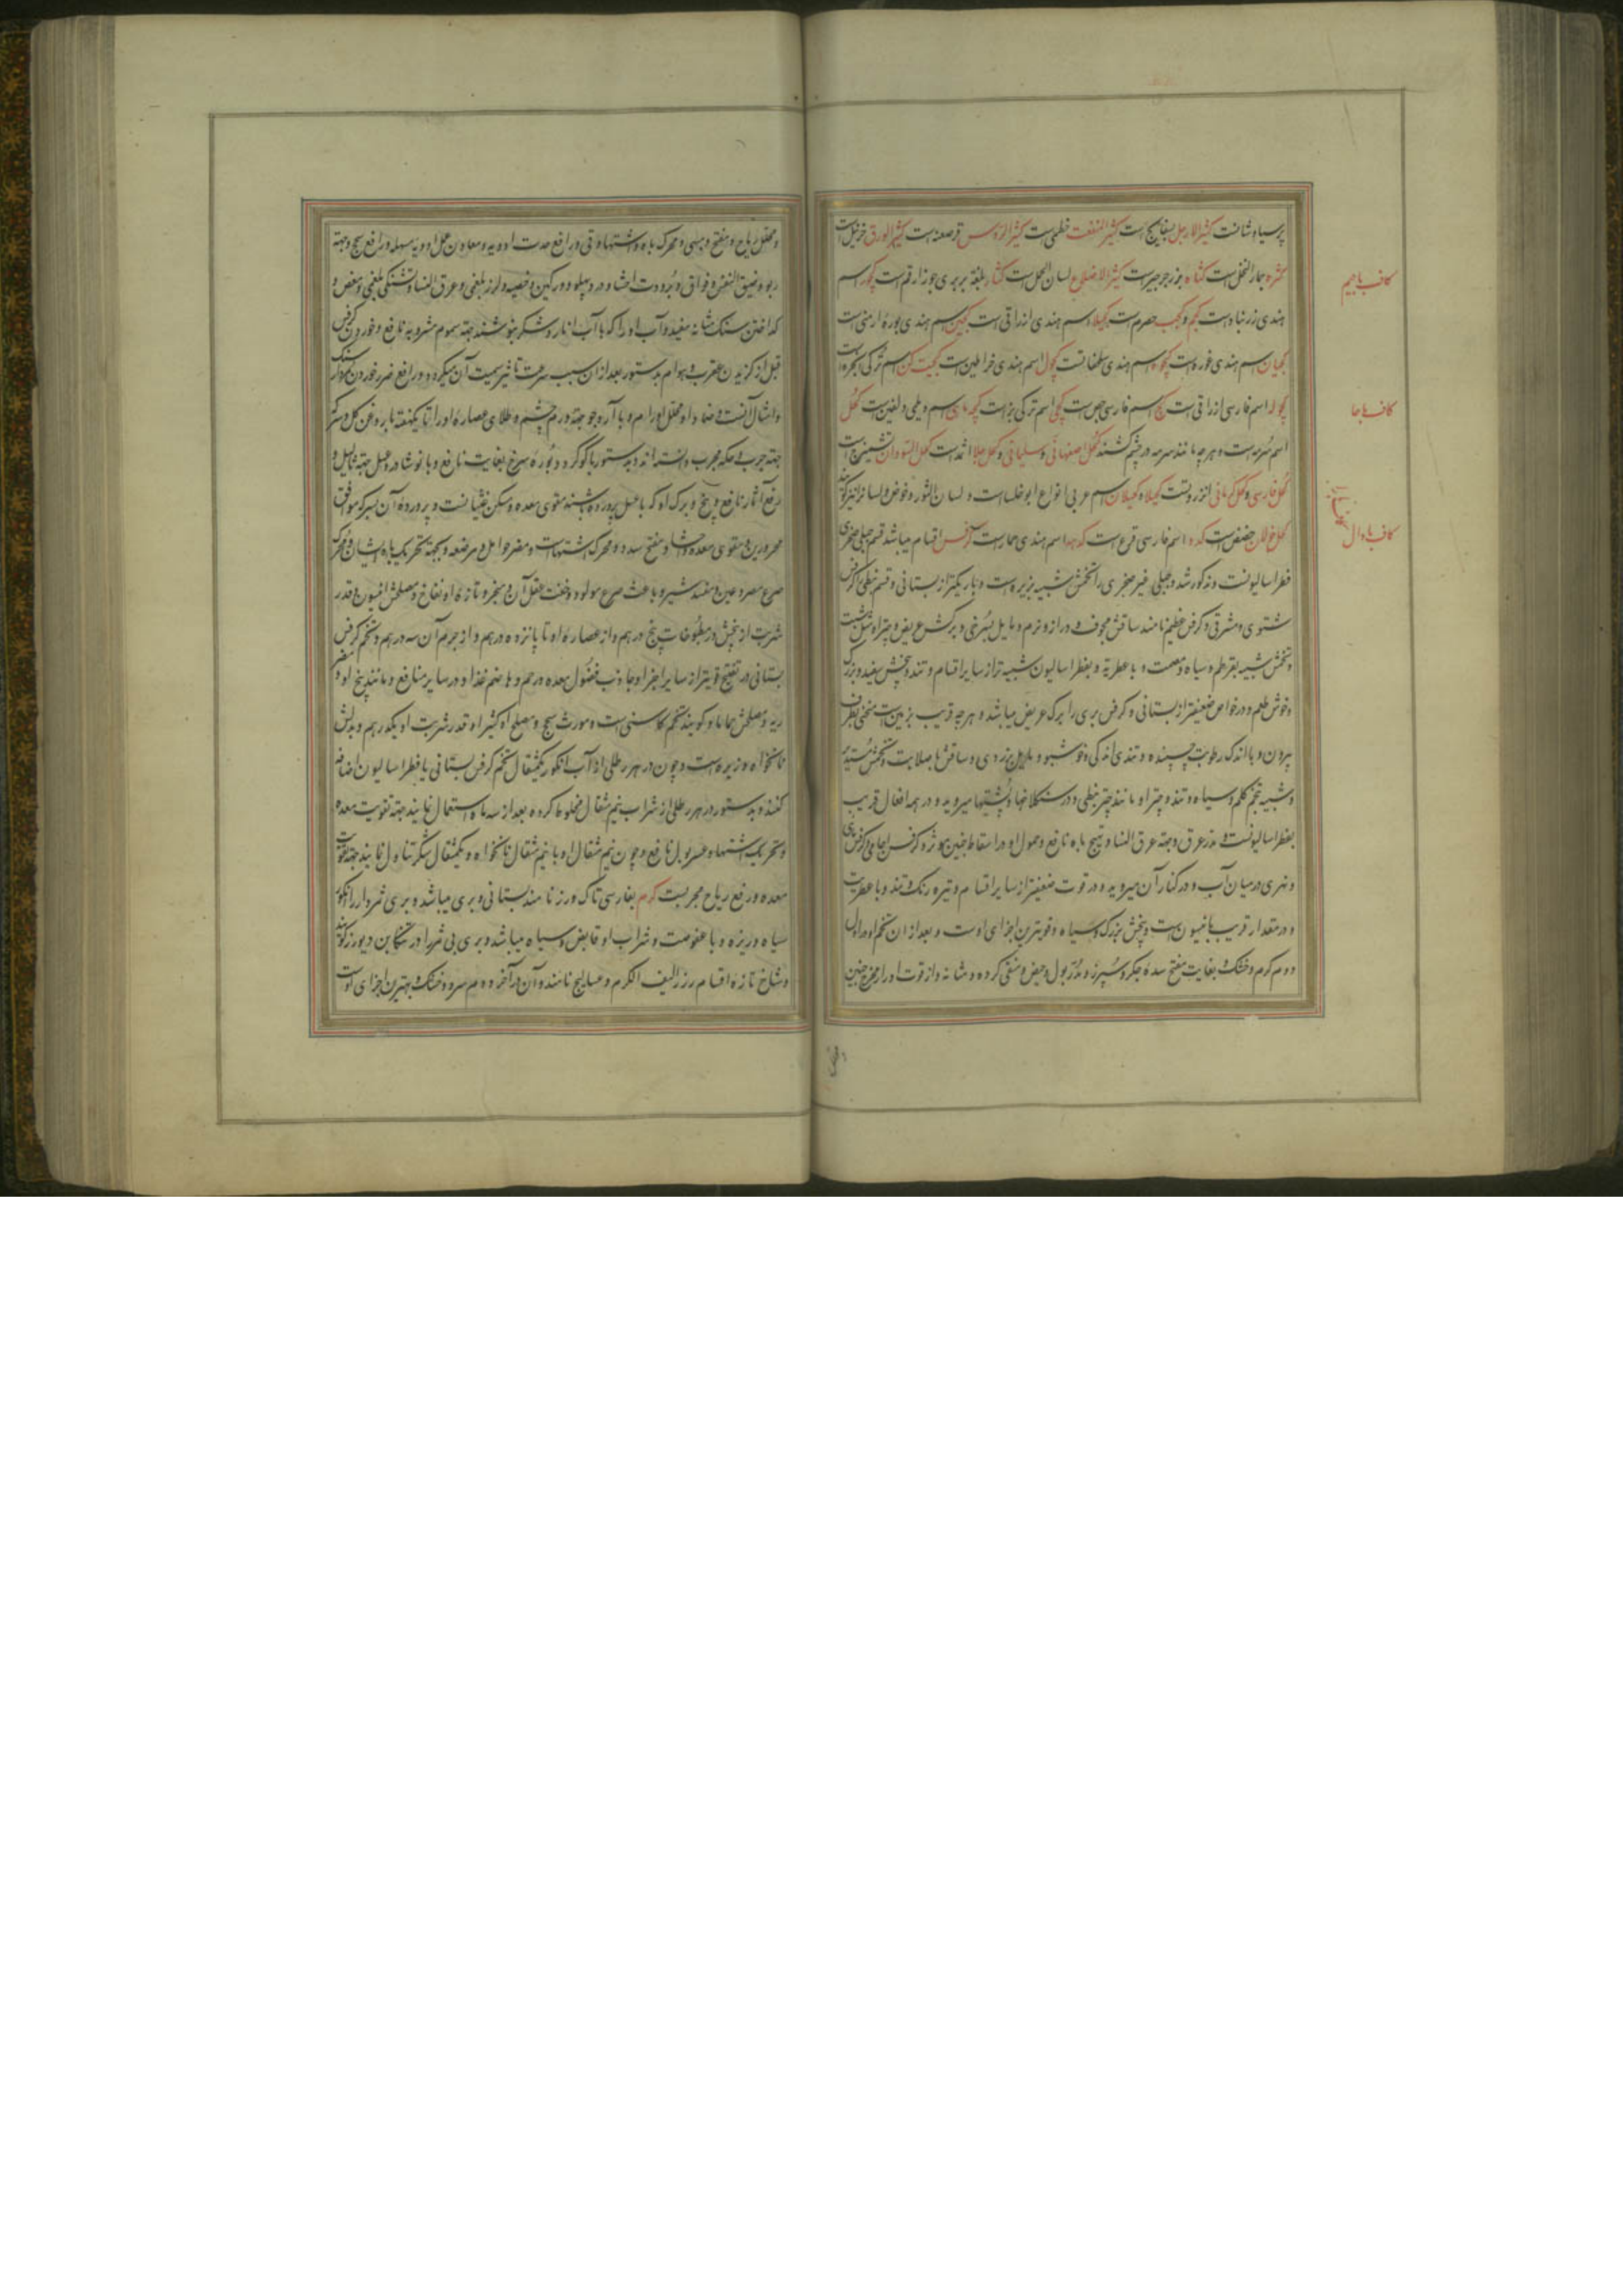 پرسیاوشانست کثیر الارجل بسفایج است کثیر المنفعت خطمی است کثیر الرؤس قرصعنه است کثیر الورق
کثره جمار النخل است کثاه بزر جرجیر است کثیر الاضلاع لسان الحمل است کثار بلغة بربری جوز ارقم است کچور اسم
کاف با جیم
هندی زرنباد است کجم و کجب حصرم است کچیلا اسم هندی ازراقی است کچین اسم هندی بوره ارمنی است
اسم هندی غوره است کچوه اسم هندی سلحفات است کچول اسم هندی خراطین است اسم ترکی انجره است
کچوله اسم فارسی ازراقی است کچ اسم فارسی جص است کچی اسم ترکی بز است اسم دیلمی دلفین است کحل
کاف با حا
اسم سرمه است و هرچه مانند سرمه در چشم کشند کحل اصفهانی و سلیمانی و کحل جلا اثمد است کحل السودان تشمیزج است
کحل فارسی و کحل کرمانی انزروتست کحیلا و کحیلان اسم عربی انواع ابوخلسا است و لسان الثور و
کحل خولان حضض است کدو اسم فارسی قرع است اسم هندی حمار است کرفس اقسام میباشد قسم جبلی صخری
کاف با دال
فطراسالیونست و مذکور شد و جبلی غیر صخری را تخمش شبیه بزیره است و باریکتر از بستانی و قسم نبطی را کرفس
شتوی و مشرقی و کرفس عظیم نامند ساقش مجوف و دراز و نرم و مایل بسرخی و برکش عریض و چتر او مثل شبت
و تخمش شبیه بقرطم و سیاه و مصمت و با عطریه و بفطراسالیون شبیه تر از سایر اقسام و تند و بیخش سفید و بزرک
و خوش طعم و در خواص ضعیفتر از بستانی و کرفس بری را برک عریض میباشد و هرچه قریب بزمین است منحنی بطرف
بیرون و با اندک رطوبت چسپنده و تندی اندکی و خوشبو و مایل بزردی و ساقش با صلابت و تخمش مستدیر
و شبیه بتخم کلم و سیاه و تند و چتر او مانند چتر نبطی و در سنکلاخها و پشتها میروید و در همه افعال قریب
بفطراسالیونست و مدر عرق و جهته عرق النسا و تهیج باه نافع و حمول او در اسقاط جنین مؤثر و کرفس اجامی و کرفس
و نهری در میان آب و در کنار آن میروید و در قوت ضعیفتر از سایر اقسام و تیره رنک و تند و با عطریت
و در مقدار قریب بانیسون است و بیخش بزرک و سیاه و قویترین اجزای اوست و بعد از ان تخم او در اول
دوم کرم و خشک و بغایت مفتح سده جکر و سپرز و مدر بول و حیض و منقی کرده و مثانه و از قوت ادرار مخرج جنین
و محلل ریاح و مفتح و مبهی و محرک باه و اشتها و قی و رافع حدت ادویه و معاون عمل ادویه مسهله و رافع سحج وجهة
ربو و ضیق النفس و فواق و برودت احشا و درد پهلو و ورکین و خصیه و لرز بلغمی و عرق النسا و تشنکی بلغمی و مغص و
کداختن سنک مثانه مفید و آب او را که با آب انار و شکر بنوشند جهة سموم مشروبه نافع و خوردن کرفس
قبل از کزیدن عقرب و هوام بدستور بعد از ان سبب سرعت تاثیر سمیت آن میکردد و رافع ضرر خوردن مرداسنک
و امثال آنست و ضماد او محلل اورام و با آرد جو جهة ورم چشم و طلای عصاره او را تا یکهفته با روغن کل و سرکه
جهة جرب و حکه مجرب دانسته اند و بدستور با کوکرد و بوره سرخ بغایت نافع و با نوشادر و عسل جهة ثالیل و
رفع آثار نافع و بیخ و برک او که با عسل پرورده باشند مقوی معده و مسکن غثیانست و پرورده آن بسرکه موافق
محرورین و مقوی معده و احشا و مفتح سدد و محرک اشتهاست و مضر حوامل و مرضعه و بجهة تحریک باه ایشان و محرک
صرع مصروعین و مفسد شیر و باعث صرع مولود و خفت عقل آن و مبخر و تازه او نفاخ و مصلحش انیسون و قدر
شربت از بیخش در مطبوخات پنج درهم و از عصاره او تا پانزده درهم و از جرم آن سه درهم و تخم کرفس
بستانی در تفتیح قویتر از سایر اجزا و جاذب فضول معده و رحم و هاضم غذا و در سایر منافع مانند بیخ او و مضر
ریه و مصلحش حماما و کویند تخم کاسنی است و مورث سحج و مصلح او کثیرا و قدر شربت او یکدرهم و بدلش
نانخواه و زیره است و چون در هر رطلی از آب انکور یکمثقال تخم کرفس بستانی یا فطراسالیون اضافه
کنند و بدستور در هر رطلی از شراب نیم مثقال مخلوط کرده بعد از سه ماه استعمال نمایند جهة تقویت معده
و تحریک اشتها و عسر بول نافع و چون نیم مثقال او با نیم مثقال نانخواه و یکمثقال شکر تناول نمایند جهة تقویت
معده و رفع ریاح مجربست کرم بفارسی تاک و رز نامند بستانی و بری میباشد و بری ثمردار را انکور
سیاه و ریزه و با عفوصت و شراب او قابض و سیاه میباشد و بری بی ثمر را در تنکابن دیورز کویند
و شاخ تازه اقسام رز را لیف الکرم و عسالیج نامند و آن در آخر دوم سرد و خشک و بهترین اجزای اوست